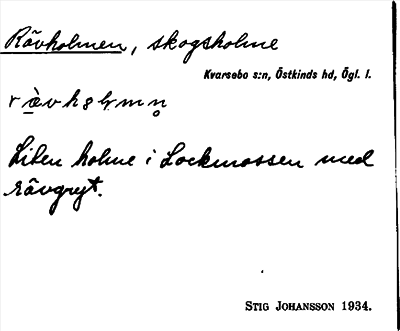 Rävholmen, skogsholme
Kvarsebo s:n, Östkinds hd, Ögl. l.
Liten holme i Lockmossen med
rävgryt.
STIG JOHANSSON 1934.